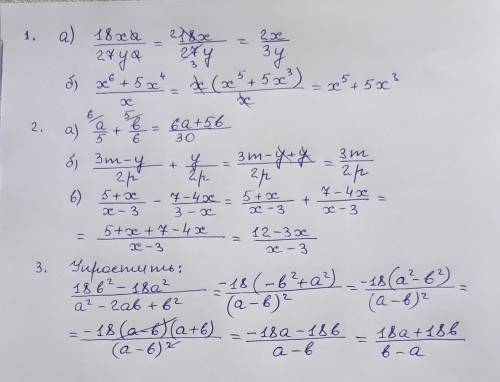 1. а) 18xa/27ya = 18x/27y = 2x/3y
б) (x⁶ + 5x⁴)/x = x(x⁵ + 5x³)/x = x⁵ + 5x³
2. а) ⁶a/5 + ⁵b/6 = (6a+5b)/30
б) (3m-y)/2p + y/2p = (3m-y+y)/2p = 3m/2p
в) (5+x)/(x-3) - (7-4x)/(3-x) = (5+x)/(x-3) + (7-4x)/(x-3) =
= (5+x+7-4x)/(x-3) = (12-3x)/(x-3)
3. Упростить:
(18b²-18a²)/(a²-2ab+b²) = -18(-b²+a²)/(a-b)² = -18(a²-b²)/(a-b)² =
= -18(a-b)(a+b)/(a-b)² = (-18a-18b)/(a-b) = (18a+18b)/(b-a)